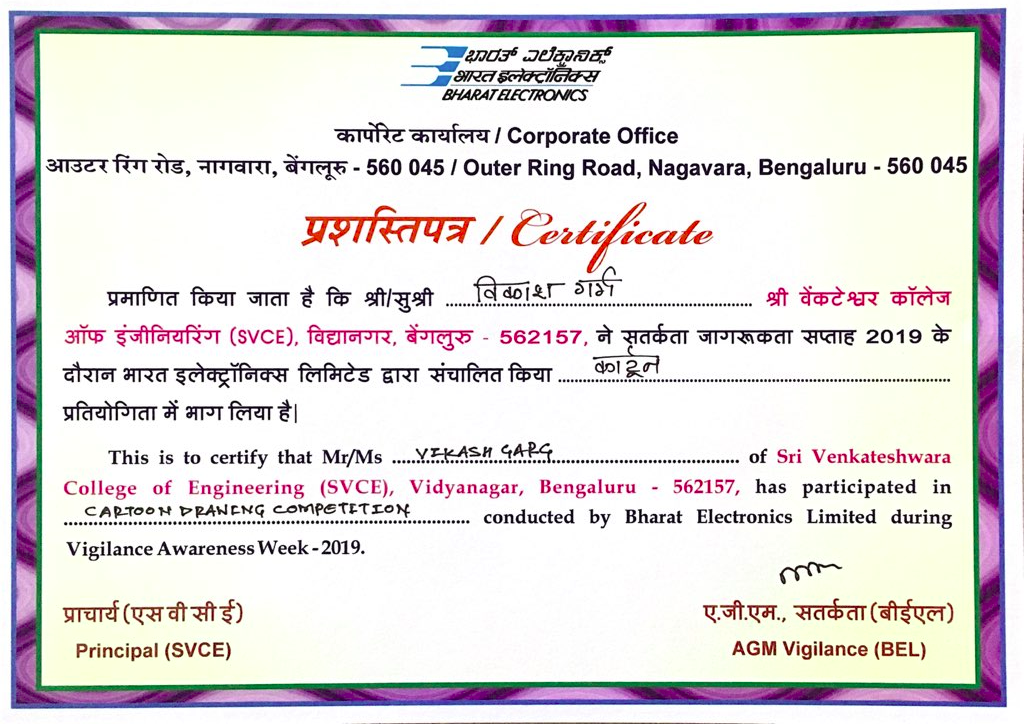 ಭಾರತ್ ಎಲೆಕ್ಟ್ರಾನಿಕ್ಸ್
भारत इलेक्ट्रॉनिक्स
BHARAT ELECTRONICS
कार्पोरेट कार्यालय / Corporate Office
आउटर रिंग रोड, नागवारा, बेंगलूरु - 560 045 / Outer Ring Road, Nagavara, Bengaluru - 560 045
प्रशस्तिपत्र / Certificate
प्रमाणित किया जाता है कि श्री/सुश्री विकाश गर्ग श्री वेंकटेश्वर कॉलेज
ऑफ इंजीनियरिंग (SVCE), विद्यानगर, बेंगलुरु - 562157, ने सतर्कता जागरूकता सप्ताह 2019 के
दौरान भारत इलेक्ट्रॉनिक्स लिमिटेड द्वारा संचालित किया कार्टून
प्रतियोगिता में भाग लिया है|
This is to certify that Mr/Ms VIKASH GARG of Sri Venkateshwara
College of Engineering (SVCE), Vidyanagar, Bengaluru - 562157, has participated in
CARTOON DRAWING COMPETITION conducted by Bharat Electronics Limited during
Vigilance Awareness Week - 2019.
प्राचार्य (एस वी सी ई) ए.जी.एम., सतर्कता (बीईएल)
Principal (SVCE) AGM Vigilance (BEL)